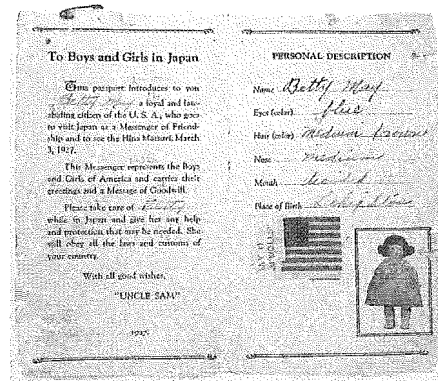 To Boys and Girls in Japan
This passport introduces to you
Betty May a loyal and law-
abiding citizen of the U. S. A., who goes
to visit Japan as a Messenger of Friend-
ship and to see the Hina Matsuri, March
3, 1927.
This Messenger represents the Boys
and Girls of America and carries their
greetings and a Message of Goodwill.
Please take care of Betty
while in Japan and give her any help
and protection that may be needed. She
will obey all the laws and customs of
your country.
With all good wishes,
"UNCLE SAM"
1927.
PERSONAL DESCRIPTION
Name Betty May
Eyes (color) blue
Hair (color) medium brown
Nose medium
Mouth
Place of Birth